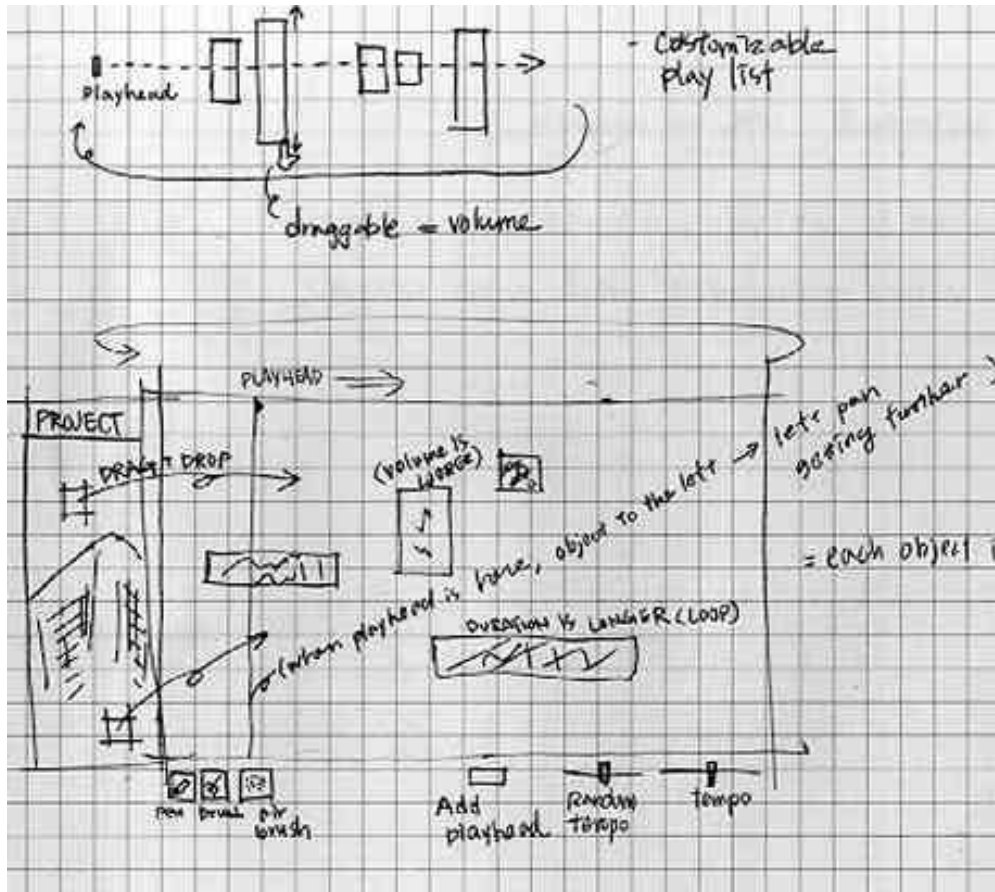 - Customizable
play list
playhead
draggable = volume
PLAYHEAD
PROJECT
DRAG + DROP
(volume is
LARGE)
(when playhead is here, object to the left → left pan
going further
= each object i
DURATION IS LONGER (LOOP)
pen
brush
air
brush
Add
playhead
Random
Tempo
Tempo